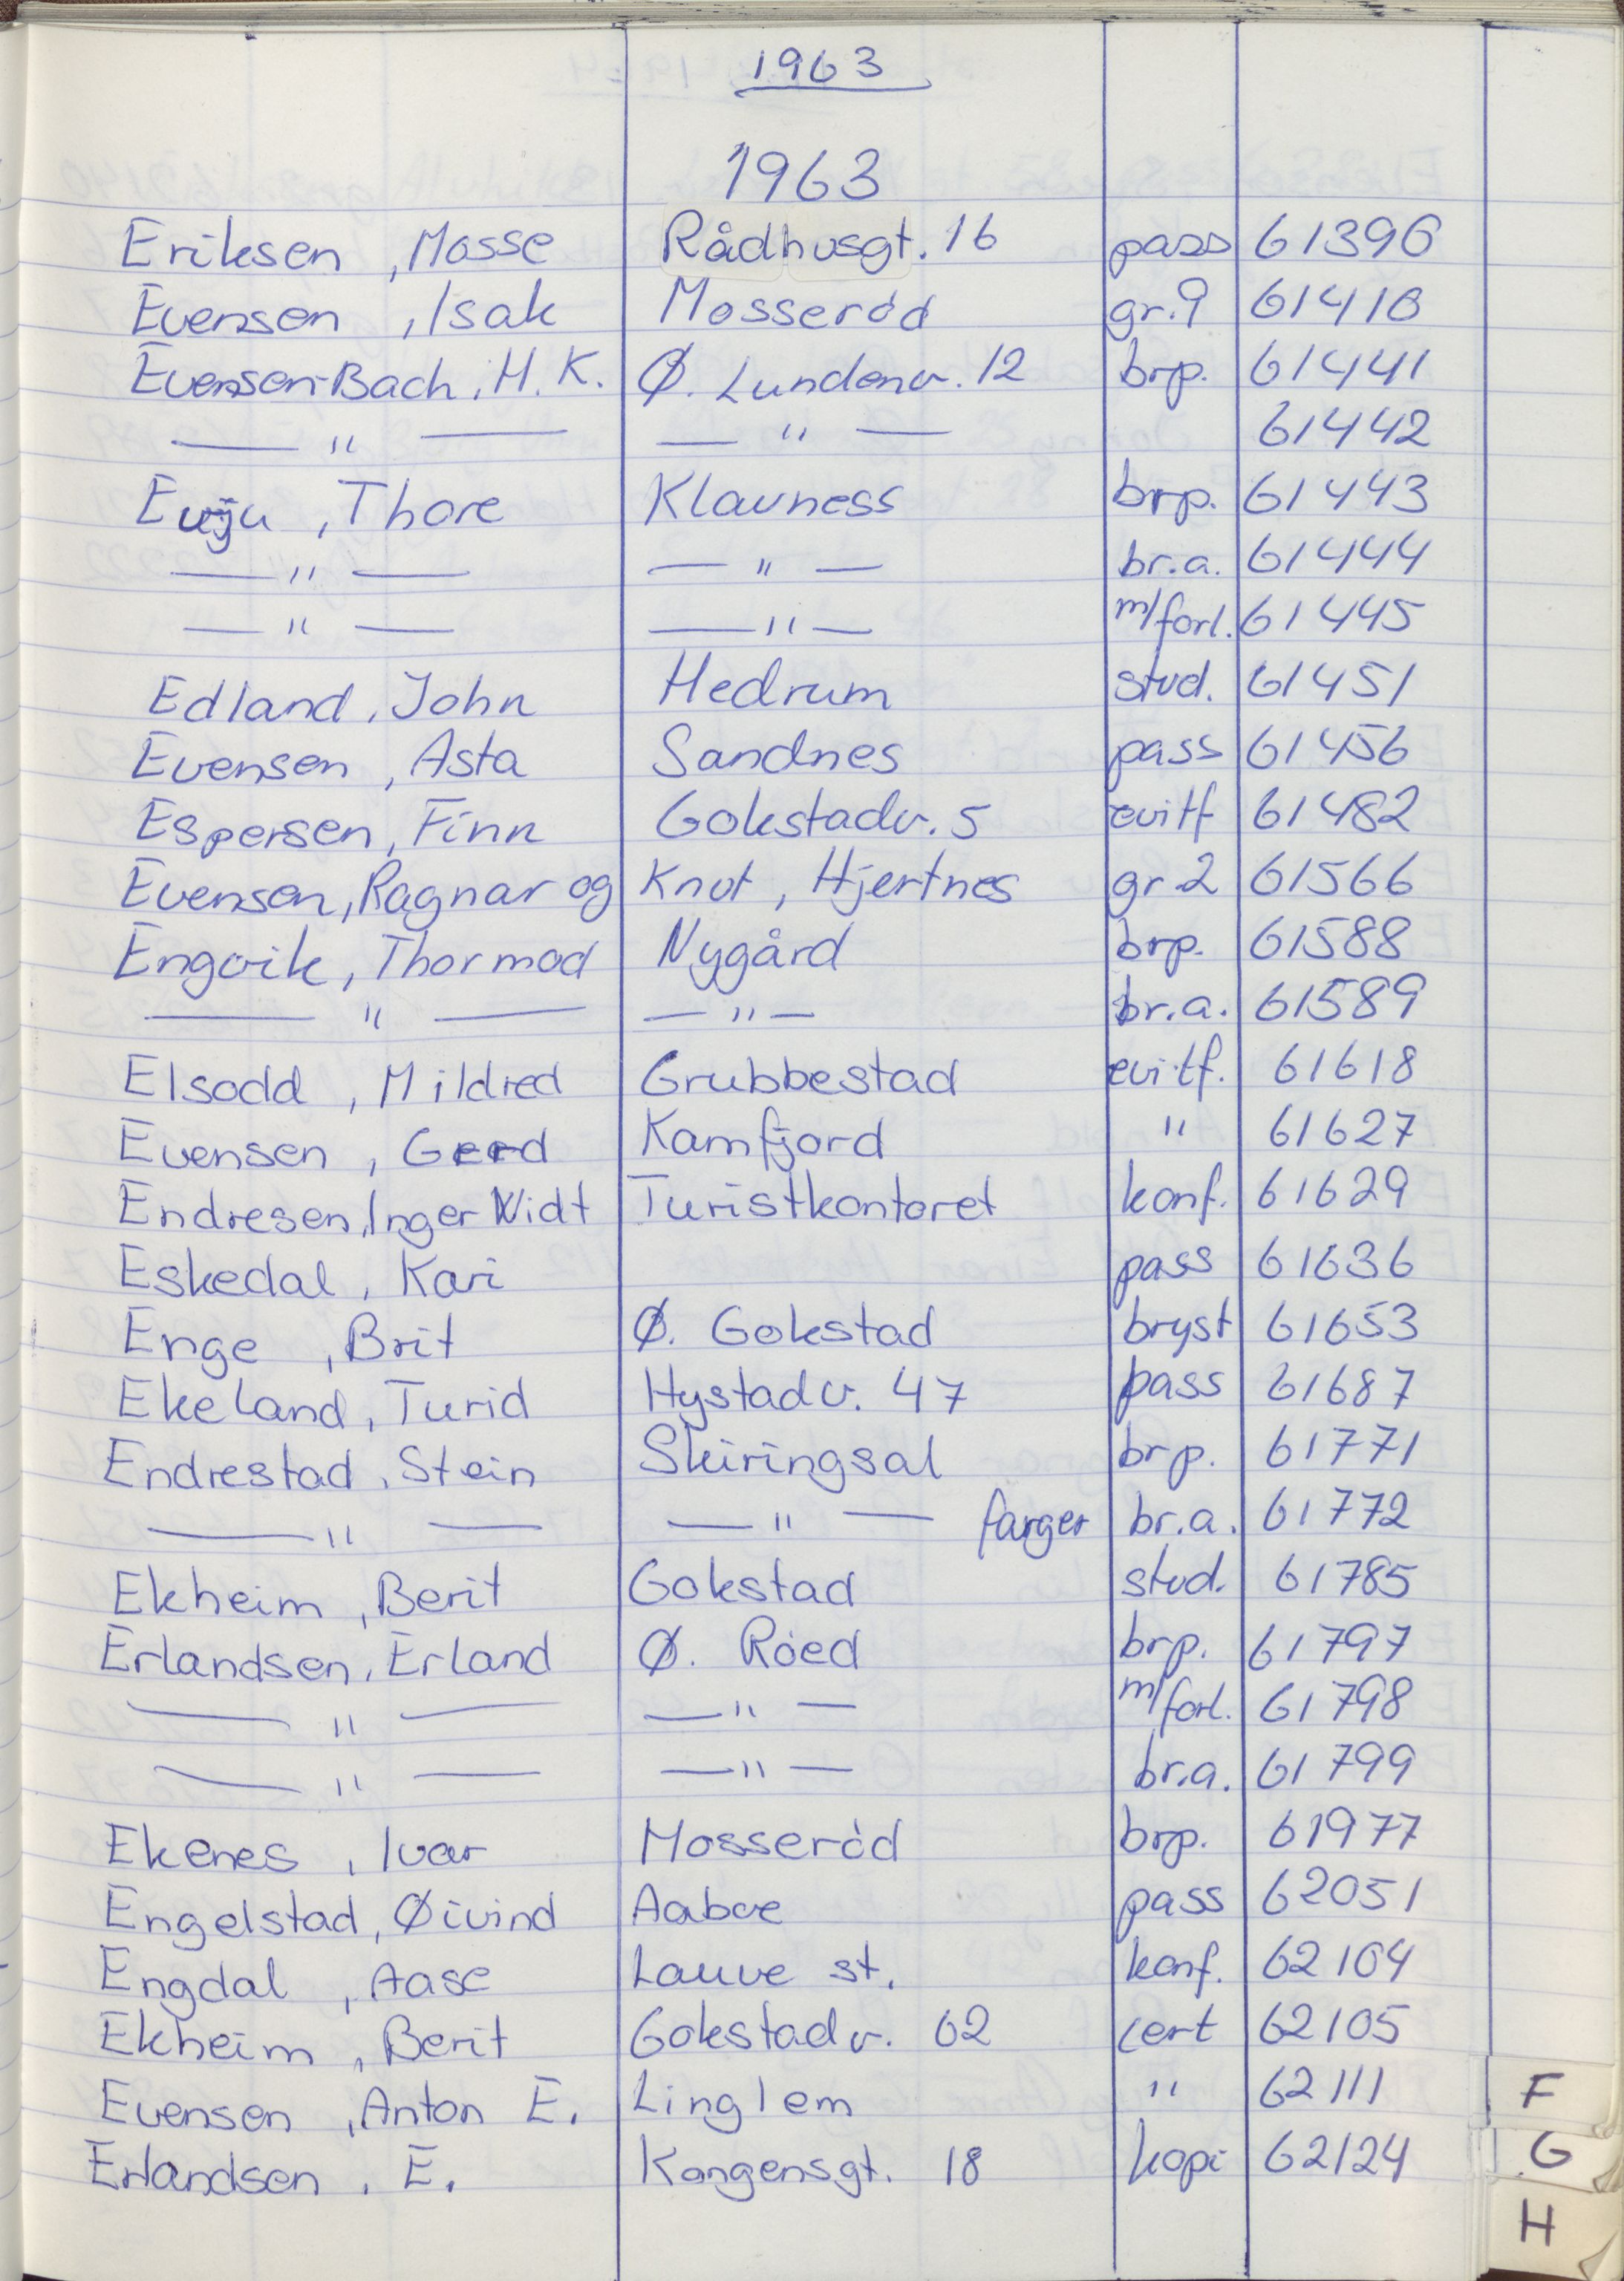 1963
1963
Eriksen , Mosse Rådhusgt. 16 pass 61396
Evensen , Isak Mosserød gr. 9 61416
Evensen-Bach, H. K. Ø. Lundenv. 12 brp. 61441
— " — — " — 61442
Evju , Thore Klavness brp. 61443
— " — — " — br.a. 61444
— " — — " — m/forl. 61445
Edland, John Hedrum stud. 61451
Evensen , Asta Sandnes pass 61456
Espersen, Finn Gokstadv. 5 evitf 61482
Evensen, Ragnar og Knut , Hjertnes gr 2 61566
Engvik, Thormod Nygård brp. 61588
— " — — " — br.a. 61589
Elsodd , Mildred Grubbestad evitf. 61618
Evensen , Gerd Kamfjord " 61627
Endresen, Inger Widt Turistkontoret konf. 61629
Eskedal , Kari pass 61636
Enge , Brit Ø. Gokstad bryst 61653
Ekeland, Turid Hystadv. 47 pass 61687
Endrestad, Stein Skiringsal brp. 61771
— " — — " — farger br.a. 61772
Ekheim , Berit Gokstad stud. 61785
Erlandsen, Erland Ø. Røed brp. 61797
— " — — " — m/forl. 61798
— " — — " — br.a. 61799
Ekenes , Ivar Mosserød brp. 61977
Engelstad, Øivind Aaboe pass 62051
Engdal , Aase Lauve st. konf. 62104
Ekheim , Berit Gokstadv. 62 cert 62105
Evensen , Anton E. Linglem " 62111
Erlandsen , E. Kongensgt. 18 kopi 62124
F
G
H